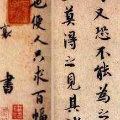 又恐不能為之
莫得之見其
也使人只求百幅
書